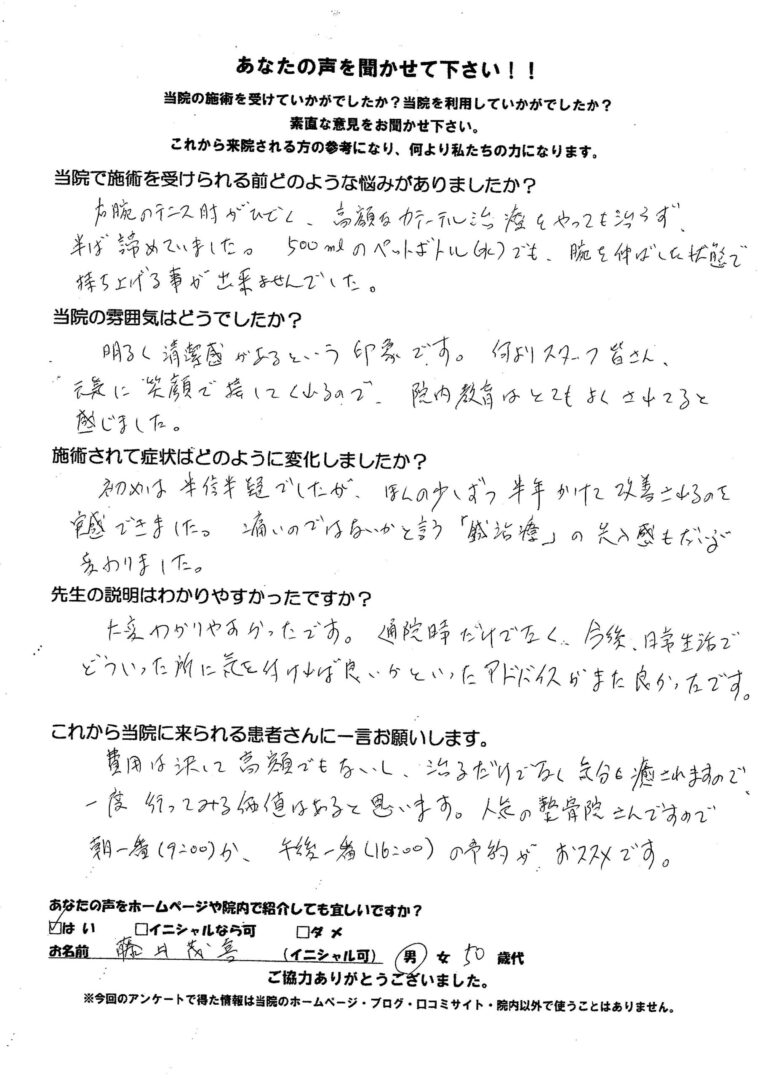 あなたの声を聞かせて下さい！！
当院の施術を受けていかがでしたか？当院を利用していかがでしたか？
素直な意見をお聞かせ下さい。
これから来院される方の参考になり、何より私たちの力になります。
当院で施術を受けられる前どのような悩みがありましたか？
右腕のテニス肘がひどく、高額なカテーテル治療をやっても治らず、
半ば諦めていました。500mlのペットボトル(水)でも、腕を伸ばした状態で
持ち上げる事が出来ませんでした。
当院の雰囲気はどうでしたか？
明るく清潔感があるという印象です。何よりスタッフ皆さん、
元気に笑顔で接してくれるので、院内教育はとてもよくされてると
感じました。
施術されて症状はどのように変化しましたか？
初めは半信半疑でしたが、ほんの少しずつ半年かけて改善されるのを
実感できました。痛いのではないかと言う「鍼治療」の先入感もだいぶ
変わりました。
先生の説明はわかりやすかったですか？
大変わかりやすかったです。通院時だけでなく、今後、日常生活で
どういった所に気を付ければ良いかといったアドバイスがまた良かったです。
これから当院に来られる患者さんに一言お願いします。
費用は決して高額でもないし、治るだけでなく気分も癒されますので、
一度行ってみる価値はあると思います。人気の整骨院さんですので
朝一番(9:00)か、午後一番(16:00)の予約がおススメです。
あなたの声をホームページや院内で紹介しても宜しいですか？
☑はい □イニシャルなら可 □ダメ
お名前 藤井茂喜 (イニシャル可) 男 女 50 歳代
ご協力ありがとうございました。
※今回のアンケートで得た情報は当院のホームページ・ブログ・口コミサイト・院内以外で使うことはありません。